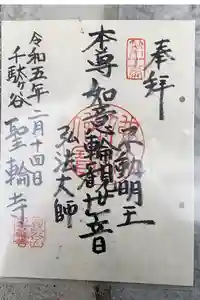 奉拝
不動明王
本尊如意輪観世音
弘法大師
令和五年二月十四日
千駄ヶ谷
聖輪寺